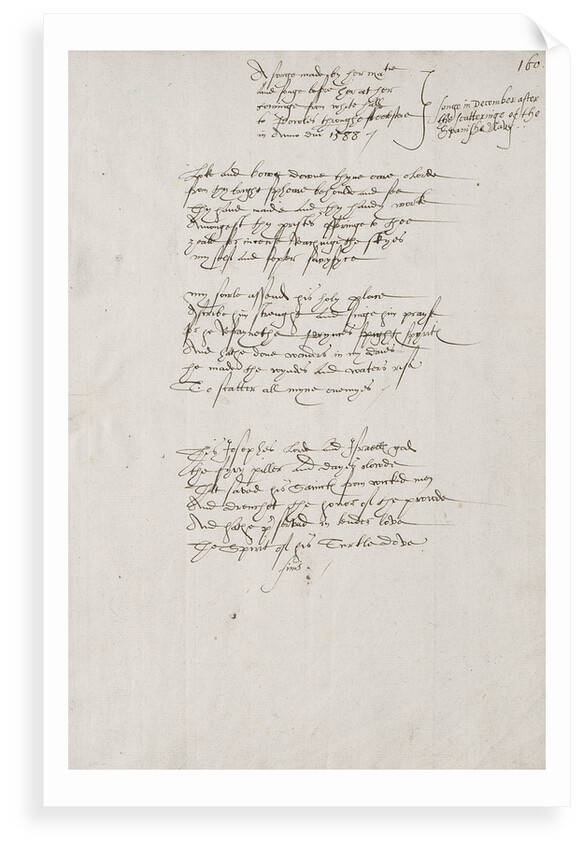 160
A songe made by her ma:tie
and songe before her at her
cominge from white hall
to Powles throughe fleetestreete
in Anno dni 1588
songe in December after
the scatteringe of the
Spanishe Navy
Loke and bowe downe thyne eare o Lorde
from thy bright spheare behould and see
Thy hand maide and thy handy worke
Amongest thy pristes offeringe to thee
zeale for incense Reachinge the skyes
my self and septer sacryfyce
My sowle assend his holy place
Ascribe him strength and singe him prayse
For he Refraynethe Prynces spyrits
And hathe done wonders in my daies
he made the wynds and waters rise
To scatter all myne enemyes
This Josephes Lorde and Israells god
the fyry piller and dayes clowde
That saved his saincts from wicked men
And drenchet the honor of the prowde
And hathe preservud in tender love
The spirit of his Turtle dove
finis